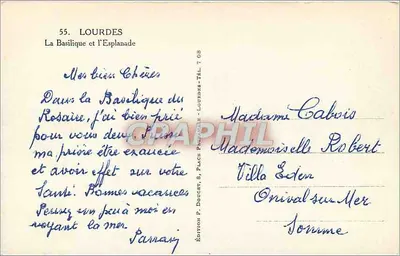 55. LOURDES
La Basilique et l'Esplanade
Mes bien Chères
Dans la Basilique du
Rosaire, j'ai bien prié
pour vous deux. Puisse
ma prière être exaucée
et avoir effet sur votre
Santé. Bonnes vacances
Pensez un peu à moi en
voyant la mer.
CARTHAPHIL
ÉDITION P. DOUCET, 8, PLACE - LOURDES - TÉL. 7 08
Madame Cabois
Mademoiselle Robert
Villa Eden
Onival-sur-Mer
Somme